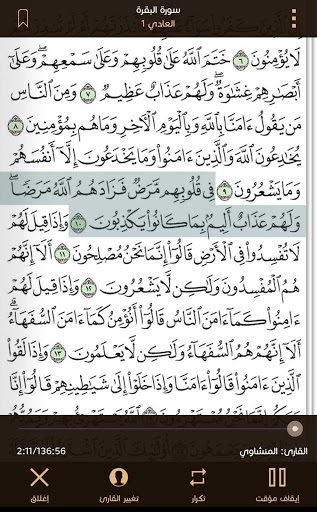 سورة البقرة
العادي 1
لَا يُؤْمِنُونَ ٦ خَتَمَ ٱللَّهُ عَلَىٰ قُلُوبِهِمْ وَعَلَىٰ سَمْعِهِمْ ۖ وَعَلَىٰٓ
أَبْصَٰرِهِمْ غِشَٰوَةٌ ۖ وَلَهُمْ عَذَابٌ عَظِيمٌ ٧ وَمِنَ ٱلنَّاسِ
مَن يَقُولُ ءَامَنَّا بِٱللَّهِ وَبِٱلْيَوْمِ ٱلْءَاخِرِ وَمَا هُم بِمُؤْمِنِينَ ٨
يُخَٰدِعُونَ ٱللَّهَ وَٱلَّذِينَ ءَامَنُوا۟ وَمَا يَخْدَعُونَ إِلَّآ أَنفُسَهُمْ
وَمَا يَشْعُرُونَ ٩ فِى قُلُوبِهِم مَّرَضٌ فَزَادَهُمُ ٱللَّهُ مَرَضًا ۖ
وَلَهُمْ عَذَابٌ أَلِيمٌۢ بِمَا كَانُوا۟ يَكْذِبُونَ ١٠ وَإِذَا قِيلَ لَهُمْ
لَا تُفْسِدُوا۟ فِى ٱلْأَرْضِ قَالُوٓا۟ إِنَّمَا نَحْنُ مُصْلِحُونَ ١١ أَلَآ إِنَّهُمْ
هُمُ ٱلْمُفْسِدُونَ وَلَٰكِن لَّا يَشْعُرُونَ ١٢ وَإِذَا قِيلَ لَهُمْ
ءَامِنُوا۟ كَمَآ ءَامَنَ ٱلنَّاسُ قَالُوٓا۟ أَنُؤْمِنُ كَمَآ ءَامَنَ ٱلسُّفَهَآءُ ۗ
أَلَآ إِنَّهُمْ هُمُ ٱلسُّفَهَآءُ وَلَٰكِن لَّا يَعْلَمُونَ ١٣ وَإِذَا لَقُوا۟
ٱلَّذِينَ ءَامَنُوا۟ قَالُوٓا۟ ءَامَنَّا وَإِذَا خَلَوْا۟ إِلَىٰ شَيَٰطِينِهِمْ قَالُوٓا۟ إِنَّا
القارئ: المنشاوي
2:11/136:56
إيقاف مؤقت
تكرار
تغيير القارئ
إغلاق